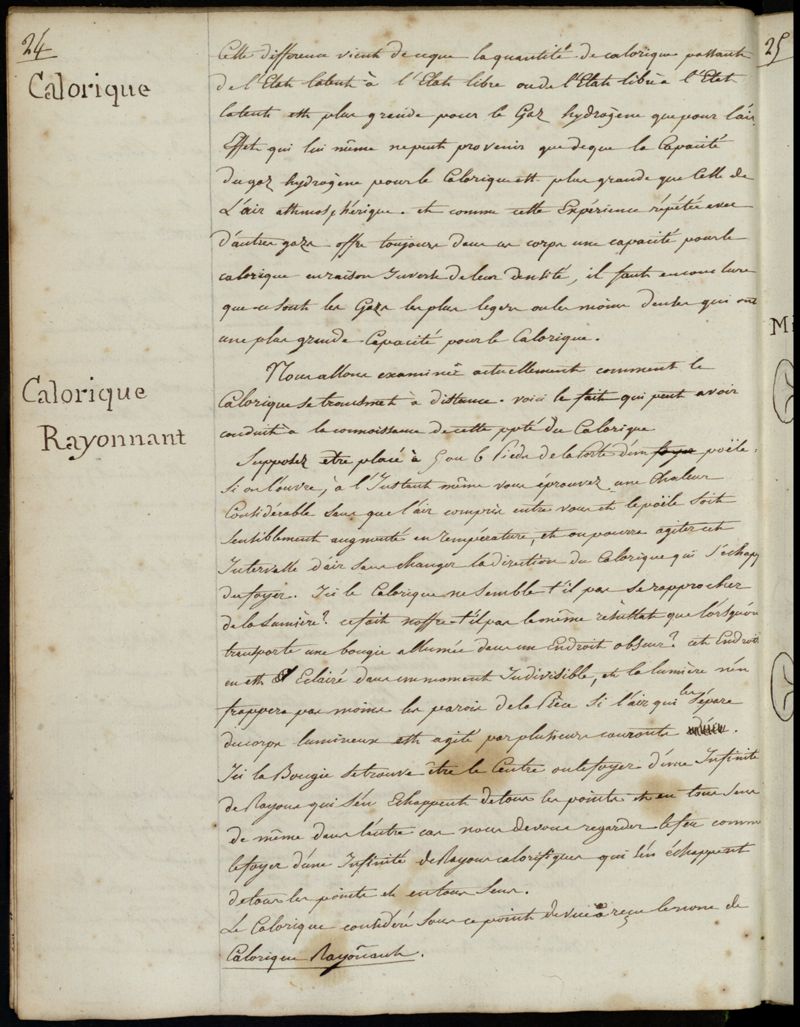 24
Calorique
Cette difference vient de ceque la quantité de calorique passant
de l'Etat latent à l'Etat libre ou de l'Etat libre a l'Etat
latent est plus grande pour le Gaz hydrogène que pour l'air.
Effet qui lui même ne peut provenir que de que la Capacité
du gaz hydrogène pour le Calorique est plus grande que Celle de
L'air athmosphérique. et comme cette Expérience répétée avec
d'autres gazs offre toujours dans ces corps une capacité pour le
calorique en raison Inverse de leur densité, il faut en conclure
que ce sont les Gazs les plus legers ou les moins denses qui ont
une plus grande Capacité pour le Calorique.
Calorique
Rayonnant
Nous allons examiner actuellement comment le
Calorique se transmet à distance. voici le fait qui peut avoir
conduit à la connoissance de cette ppté du Calorique
Supposez être placé à 5 ou 6 Pieds de la Porte d'un foyer poële.
Si on l'ouvre, à l'Instant même vous éprouvez une Chaleur
Considérable sans que l'air compris entre vous et le poële soit
Sensiblement augmenté en température, et on pourra agiter cet
Intervalle d'air sans changer la direction du Calorique qui s'échapp
du foyer. Ici le Calorique ne semble t'il pas se rapprocher
de la Lumière? ce fait n'offre-t'il pas le même résultat que lorsqu'on
transporte une bougie allumée dans un Endroit obscur? cet Endroit
en est Eclairé dans un moment Indivisible, et la lumière n'en
frappera pas moins les parois de la Pièce si l'air qui les sépare
du corps lumineux est agité par plusieurs courants.
Ici la Bougie se trouve être le Centre ou le foyer d'une Infinité
de Rayons qui s'en Echappent de tous les points et en tous Sens
de même dans l'autre cas nous devons regarder le feu comme
le foyer d'une Infinité de Rayons calorifiques qui s'en échappent
de tous les points et en tous Sens.
Le Calorique considéré sous ce point de vue a reçu le nom de
Calorique Rayonant.
25